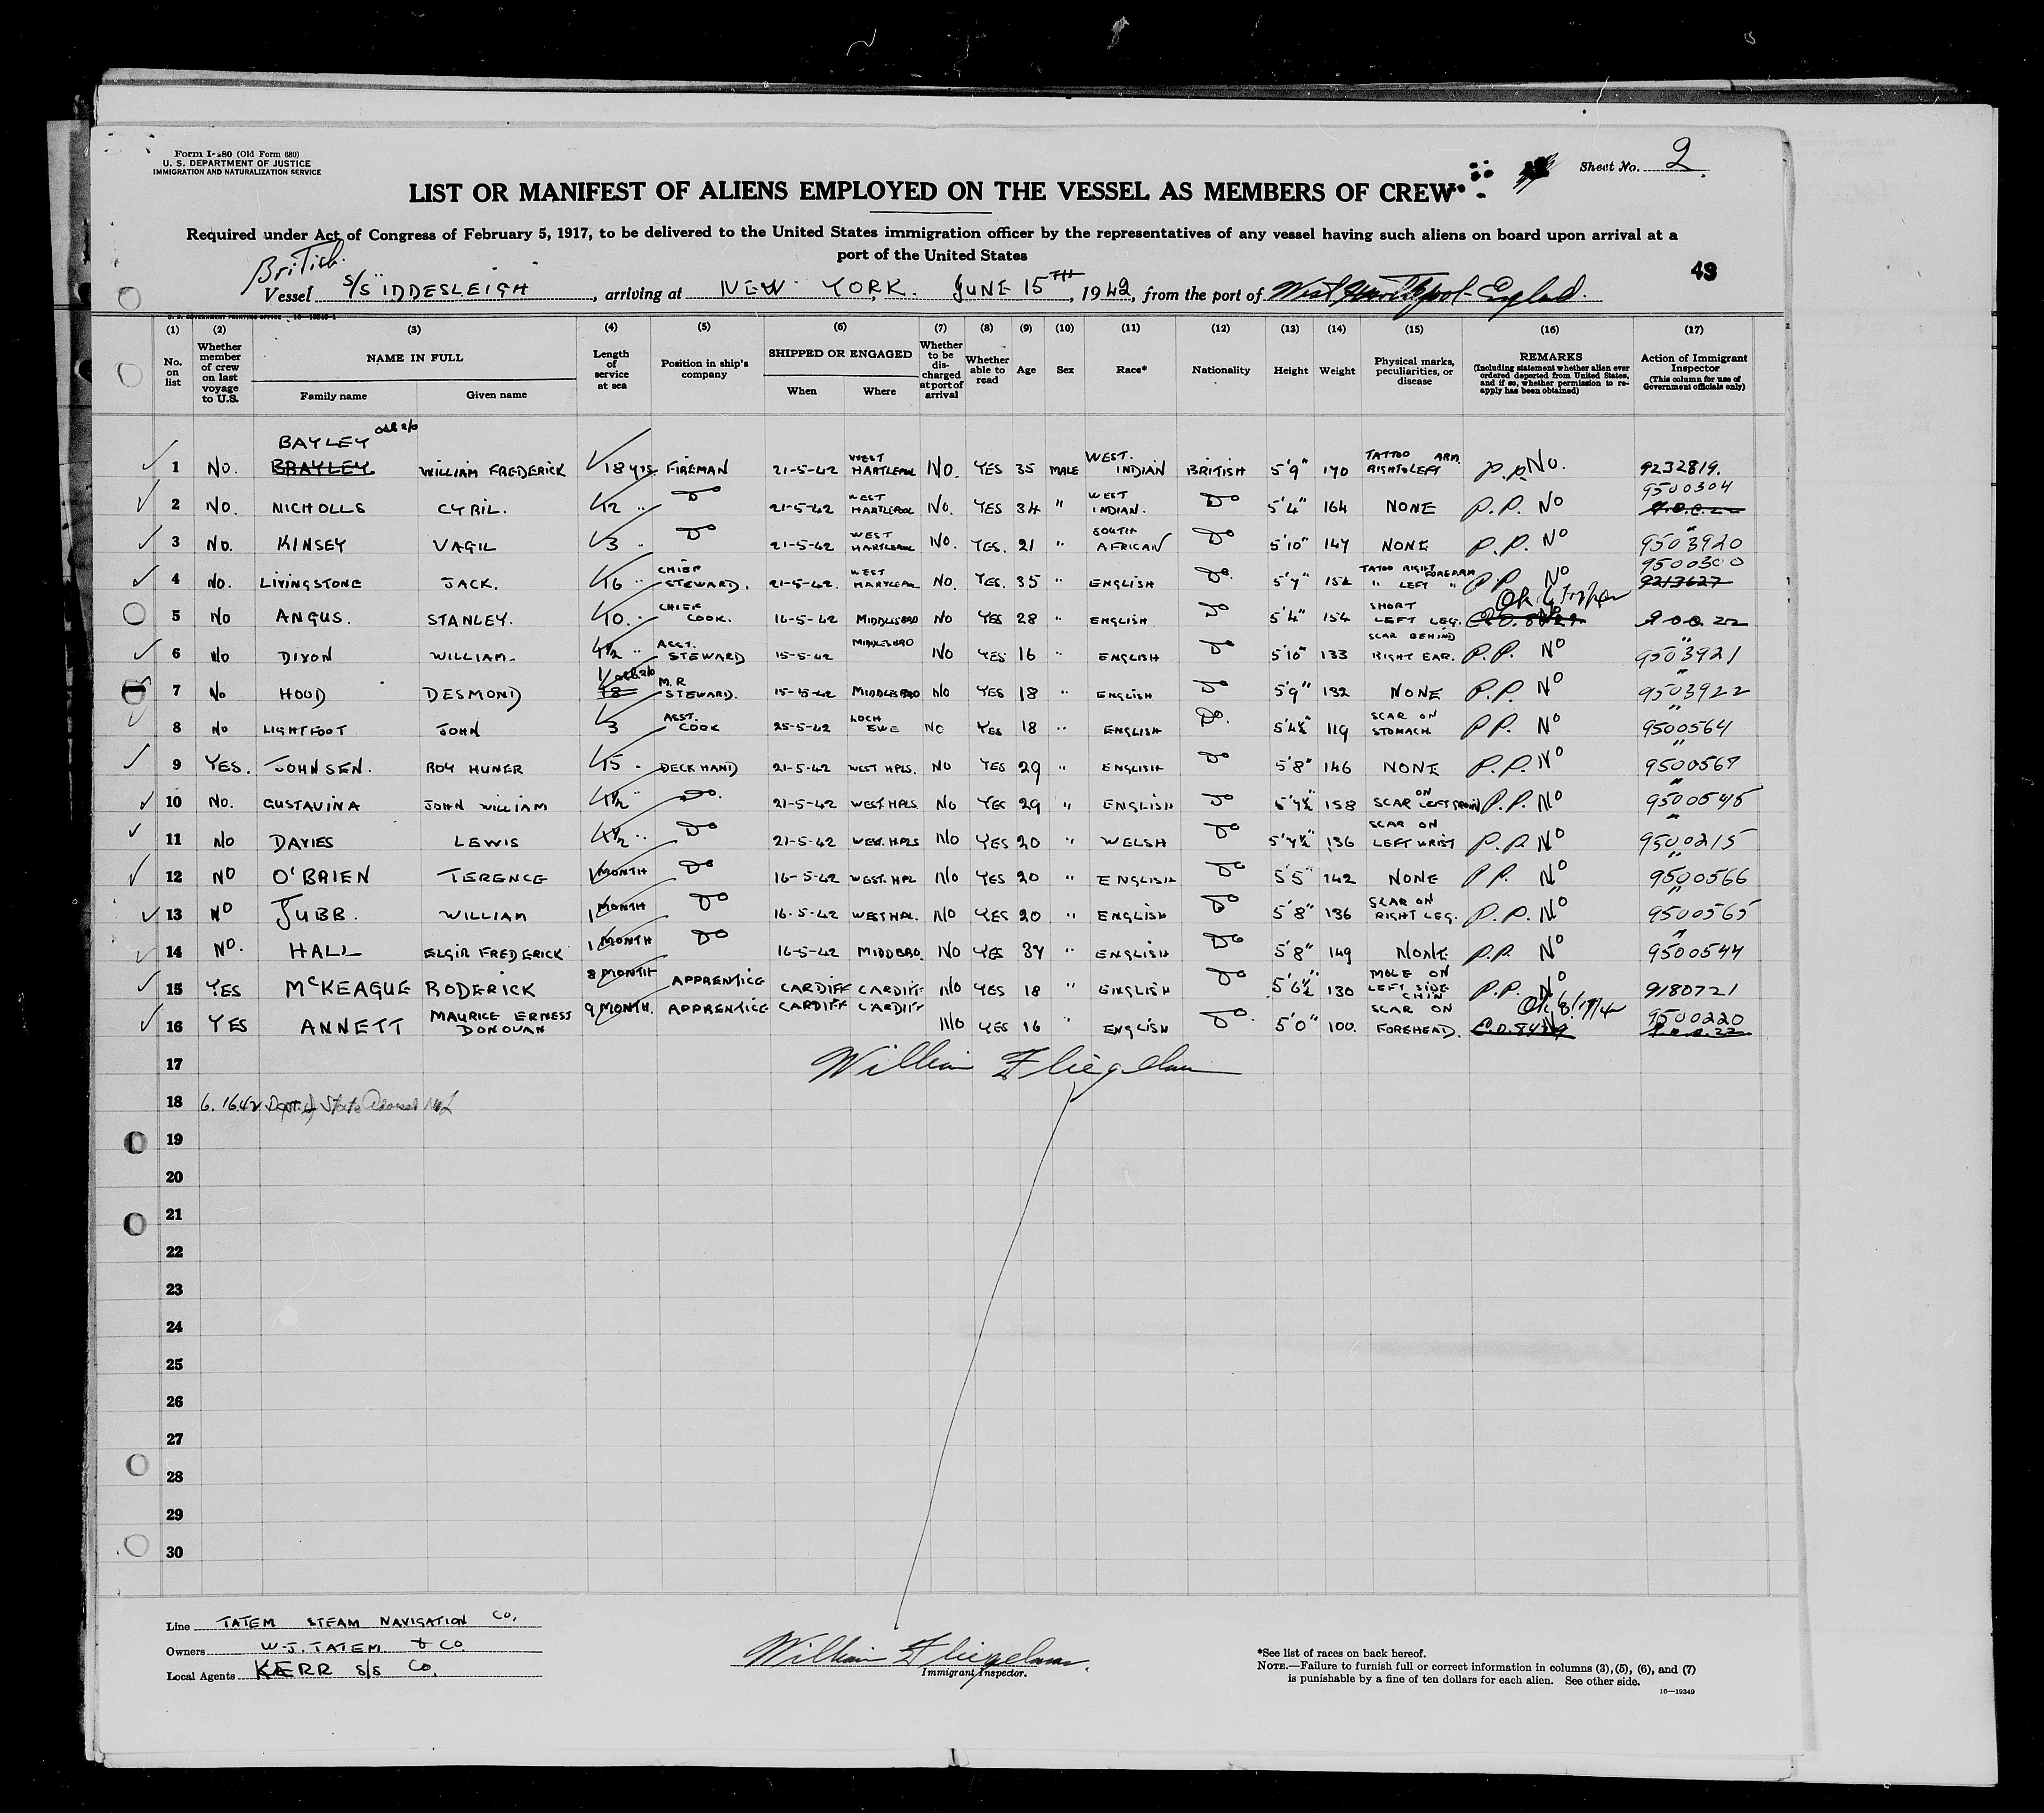 Form I-480 (Old Form 680)
U. S. DEPARTMENT OF JUSTICE
IMMIGRATION AND NATURALIZATION SERVICE
Sheet No. 2
LIST OR MANIFEST OF ALIENS EMPLOYED ON THE VESSEL AS MEMBERS OF CREW
Required under Act of Congress of February 5, 1917, to be delivered to the United States immigration officer by the representatives of any vessel having such aliens on board upon arrival at a
port of the United States
43
British
Vessel S/S IDDESLEIGH, arriving at NEW YORK. JUNE 15TH, 1942, from the port of West Hartlepool - England.
(1) (2) (3) (4) (5) (6) (7) (8) (9) (10) (11) (12) (13) (14) (15) (16) (17)
No. on list
Whether member of crew on last voyage to U.S.
NAME IN FULL
Family name
Given name
Length of service at sea
Position in ship's company
SHIPPED OR ENGAGED
When
Where
Whether to be discharged at port of arrival
Whether able to read
Age
Sex
Race*
Nationality
Height
Weight
Physical marks, peculiarities, or disease
REMARKS
(Including statement whether alien ever ordered deported from United States, and if so, whether permission to reapply has been obtained)
Action of Immigrant Inspector
(This column for use of Government officials only)
BAYLEY
1 NO. BRAYLEY WILLIAM FREDERICK 18 yrs. FIREMAN 21-5-42 WEST HARTLEPOOL NO. YES 35 MALE WEST. INDIAN BRITISH 5'9" 170 TATTOO ARM. RIGHT & LEFT P.P. NO. 9232819.
2 NO. NICHOLLS CYRIL. 12 " DO 21-5-42 WEST HARTLEPOOL NO. YES 34 " WEST INDIAN. DO 5'4" 164 NONE P.P. NO 9500304
3 NO. KINSEY VAGIL 3 " DO 21-5-42 WEST HARTLEPOOL NO. YES. 21 " SOUTH AFRICAN DO 5'10" 147 NONE P.P. NO 9503920
4 NO. LIVINGSTONE JACK. 16 " CHIEF STEWARD. 21-5-42. WEST HARTLEPOOL NO. YES. 35 " ENGLISH DO. 5'7" 152 TATOO RIGHT FOREARM " LEFT " P.P. NO 9500300 9213627
5 NO ANGUS. STANLEY. 10. " CHIEF COOK. 16-5-42 MIDDLESBRO NO YES 28 " ENGLISH DO 5'4" 154 SHORT LEFT LEG.
6 NO DIXON WILLIAM. 4½ " ASST. STEWARD 15-5-42 MIDDLESBRO NO YES 16 " ENGLISH DO 5'10" 133 SCAR BEHIND RIGHT EAR. P.P. NO 9503921
7 NO HOOD DESMOND M.R STEWARD. 15-5-42 MIDDLESBRO NO YES 18 " ENGLISH DO 5'9" 132 NONE P.P. NO 9503922
8 NO LIGHTFOOT JOHN 3 ASST. COOK 25-5-42 LOCH EWE NO YES 18 " ENGLISH DO. 5'4½" 119 SCAR ON STOMACH. P.P. NO 9500564
9 YES. JOHNSEN. ROY HUNER 15 " DECK HAND 21-5-42 WEST HPLS. NO YES 29 " ENGLISH DO 5'8" 146 NONE P.P. NO 9500567
10 NO. GUSTAVINA JOHN WILLIAM 1½ " DO. 21-5-42 WEST. HPLS. NO YES 29 " ENGLISH DO 5'7½" 158 SCAR ON LEFT GROIN P.P. NO 9500545
11 NO DAVIES LEWIS 4½ " DO 21-5-42 WEST. HPLS NO YES 20 " WELSH DO 5'7½" 136 SCAR ON LEFT WRIST P.P. NO 9500215
12 NO O'BRIEN TERENCE 1 MONTH DO 16-5-42 WEST. HPL NO YES 20 " ENGLISH DO 5'5" 142 NONE P.P. NO 9500566
13 NO JUBB. WILLIAM 1 MONTH DO 16-5-42 WEST HPL. NO YES 20 " ENGLISH DO 5'8" 136 SCAR ON RIGHT LEG. P.P. NO 9500565
14 NO. HALL ELGIR FREDERICK 1 MONTH DO 16-5-42 MIDDBRO. NO YES 37 " ENGLISH DO 5'8" 149 NONE. P.P. NO 9500544
15 YES McKEAGUE RODERICK 8 MONTH APPRENTICE CARDIFF CARDIFF NO YES 18 " ENGLISH DO 5'6½" 130 MOLE ON LEFT SIDE CHIN P.P. NO 9180721
16 YES ANNETT MAURICE ERNESS DONOVAN 9 MONTH. APPRENTICE CARDIFF CARDIFF NO YES 16 " ENGLISH DO. 5'0" 100. SCAR ON FOREHEAD. 9500220
17 William Fliegelman
18 6.16.42 Dept. of State
19
20
21
22
23
24
25
26
27
28
29
30
Line TATEM STEAM NAVIGATION Co.
Owners W.J. TATEM & Co
Local Agents KERR S/S Co.
William Fliegelman.
Immigrant Inspector.
*See list of races on back hereof.
NOTE.—Failure to furnish full or correct information in columns (3), (5), (6), and (7)
is punishable by a fine of ten dollars for each alien. See other side.
16—19349